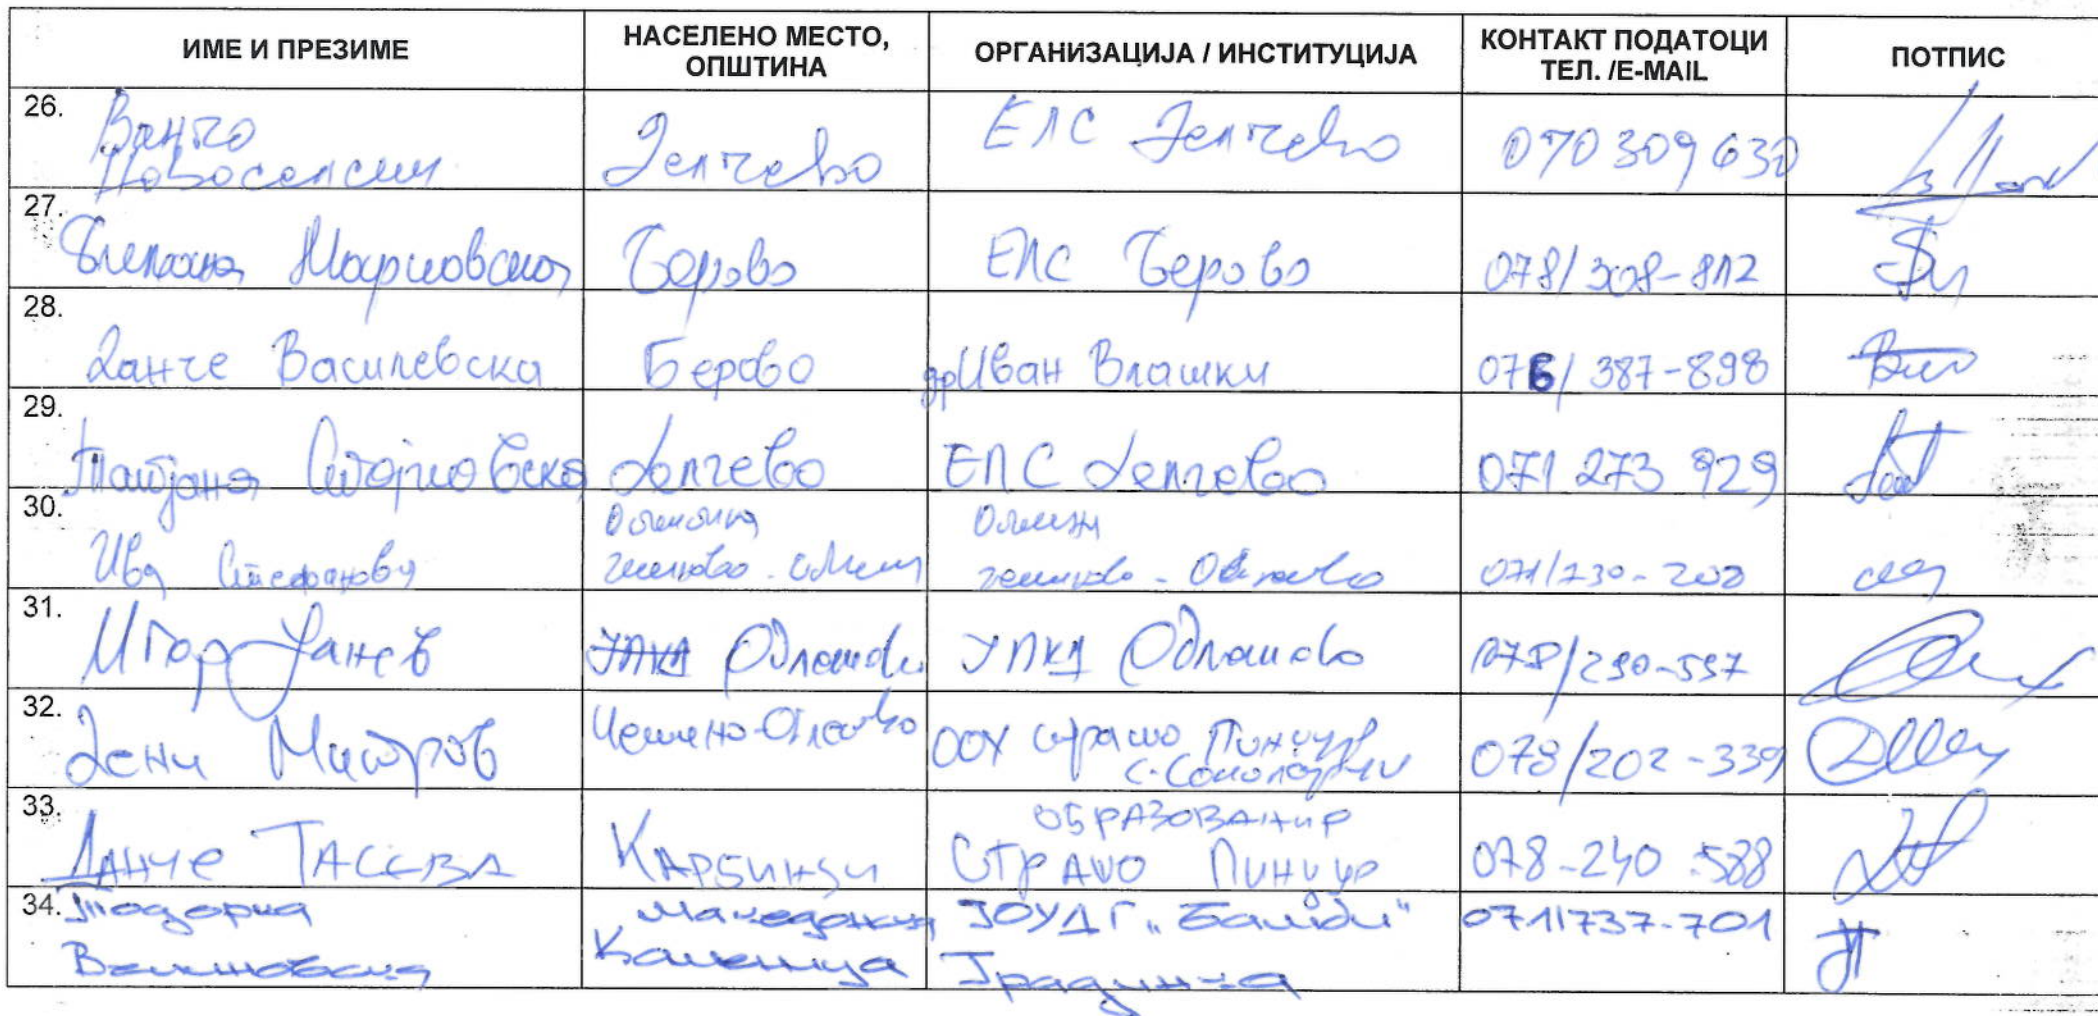 ИМЕ И ПРЕЗИМЕ
НАСЕЛЕНО МЕСТО,
ОПШТИНА
ОРГАНИЗАЦИЈА / ИНСТИТУЦИЈА
КОНТАКТ ПОДАТОЦИ
ТЕЛ. /E-MAIL
ПОТПИС
26.
Ванчо
Новоселски
Делчево
ЕЛС Делчево
070 309 630
27.
Марковска
Берово
ЕЛС Берово
078/308-812
28.
Данче Василевска
Берово
др Иван Влашки
076/387-898
29.
Татјана Стојковска
Делчево
ЕЛС Делчево
071 273 929
30.
Ива Стефанова
Општина
Општина
071/230-202
31.
Игор Јанев
УПКД Облешево
УПКД Облешево
32.
Дени Митров
Чешино-Облешево
ООУ Страшо Пинџур
с. Соколарци
078/202-339
33.
Данче ТАСЕВА
КАРБИНЦИ
ОБРАЗОВАНИЕ
СТРАШО Пинџур
078-240-588
34. Тодорка
Македонска
Каменица
ЈОУДГ „Бамби"
Градинка
071/737-701